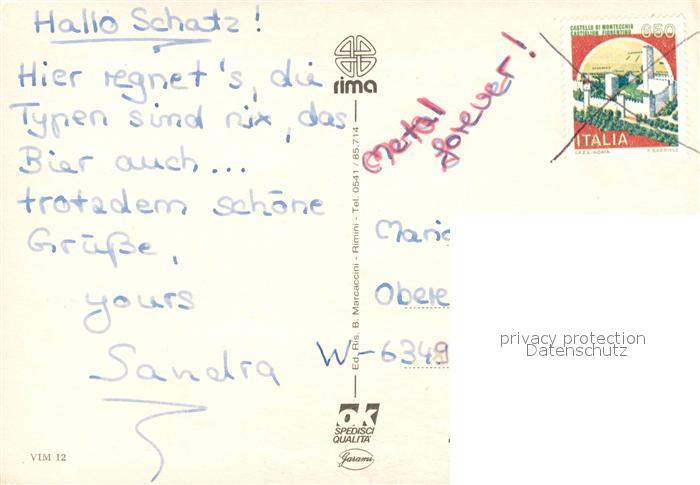 Hallo Schatz!
Hier regnet's, die
Typen sind nix, das
Bier auch...
trotzdem schöne
Grüße,
yours
Sandra
VIM 12
rima
Ed. Ris. B. Marcaccini - Rimini - Tel. 0541 / 85.714
ok
SPEDISCI
QUALITA'
Garami
metal
forever!
CASTELLO DI MONTECCHIO
CASTIGLION FIORENTINO
650
ITALIA
I.P.Z.S. - ROMA
Obere
W-6349
privacy protection
Datenschutz